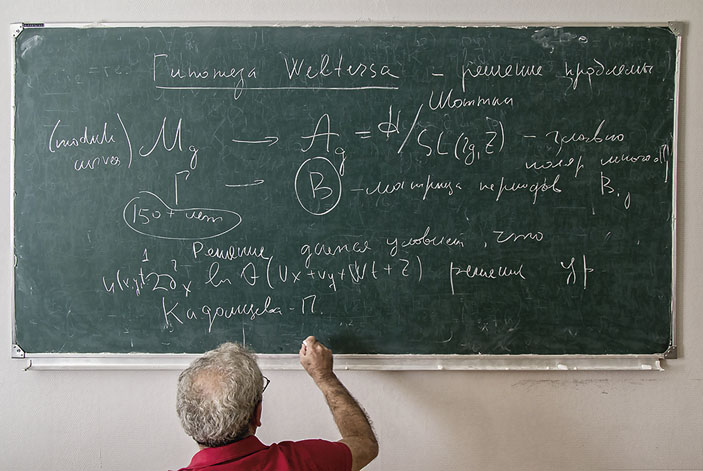 Гипотеза Weltersa – решение проблемы
Шоттки
(moduli curves) M_g → A_g = H/SL(2g, Z) – главно
поляр многооб
Γ → B – матрица периодов B_ij
150+ лет
Решение дается условием, что
u(x,y,t) 2∂²_x ln θ(Ux+Vy+Wt+Z) решение ур
Кадомцева-П.